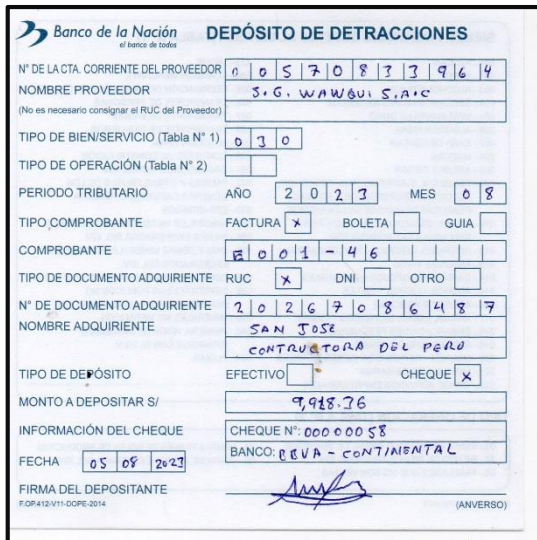 Banco de la Nación
el banco de todos
DEPÓSITO DE DETRACCIONES
N° DE LA CTA. CORRIENTE DEL PROVEEDOR 00570833964
NOMBRE PROVEEDOR S.G. WAWQUI S.A.C
(No es necesario consignar el RUC del Proveedor)
TIPO DE BIEN/SERVICIO (Tabla N° 1) 030
TIPO DE OPERACIÓN (Tabla N° 2)
PERIODO TRIBUTARIO AÑO 2023 MES 08
TIPO COMPROBANTE FACTURA x BOLETA GUIA
COMPROBANTE E001-46
TIPO DE DOCUMENTO ADQUIRIENTE RUC x DNI OTRO
N° DE DOCUMENTO ADQUIRIENTE 20267086487
NOMBRE ADQUIRIENTE SAN JOSE
CONTRUCTORA DEL PERU
TIPO DE DEPÓSITO EFECTIVO CHEQUE x
MONTO A DEPOSITAR S/ 9,928.36
INFORMACIÓN DEL CHEQUE CHEQUE N°: 00000058
FECHA 05 08 2023 BANCO: BBVA - CONTINENTAL
FIRMA DEL DEPOSITANTE
F.OP.412-V11-DOPE-2014 (ANVERSO)